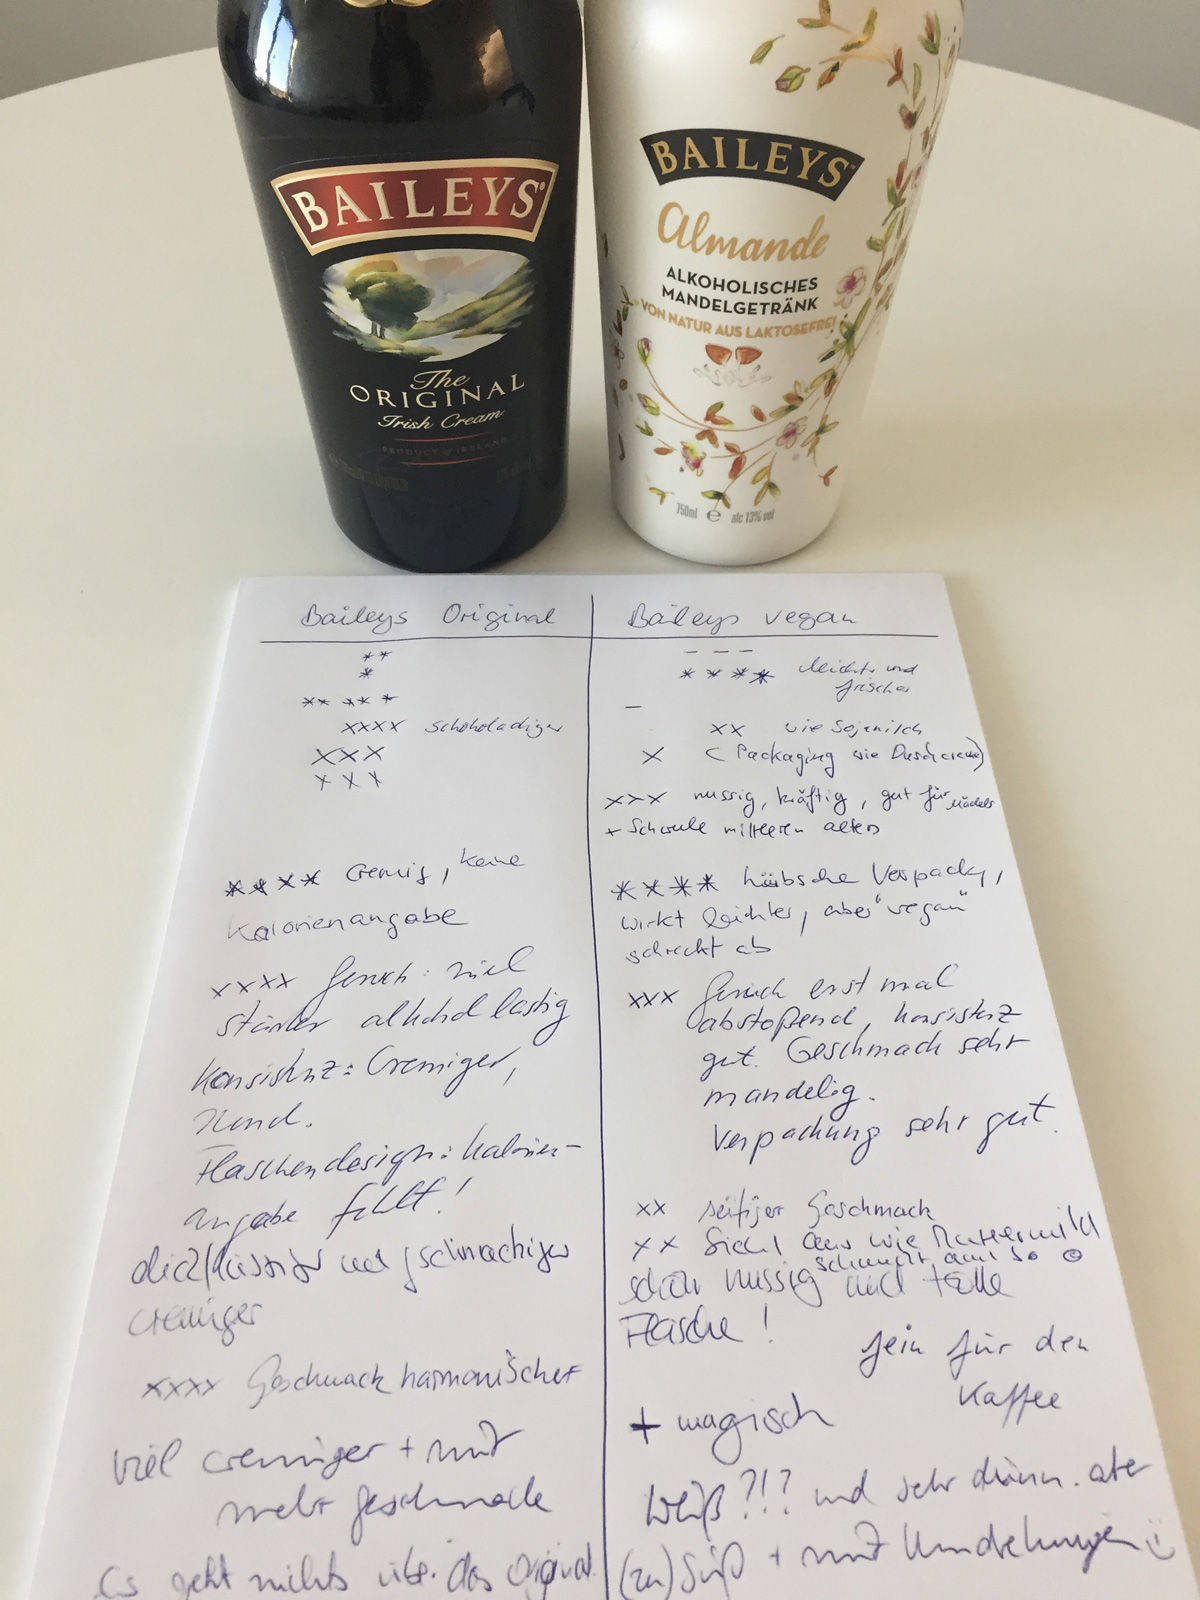 BAILEYS
The
ORIGINAL
Irish Cream
PRODUCT of IRELAND
BAILEYS
Almande
ALKOHOLISCHES
MANDELGETRÄNK
VON NATUR AUS LAKTOSEFREI
750ml e alc 13% vol
Baileys Original
**
*
** ** *
xxxx schokoladiger
xxx
xxx
**** cremig, keine
Kalorienangabe
xxxx Geruch: viel
stärker alkohol lastig
Konsistenz: Cremiger,
rund.
Flaschendesign: Kalorien-
angabe fehlt!
dickflüssiger und geschmackiger
cremiger
xxxx Geschmack harmonischer
viel cremiger + mit
mehr geschmack
Es geht nichts üb. das Original.
Baileys vegan
- - -
**** leichter und
frischer
-
xx wie Sojamilch
x (Packaging wie Duschcreme)
xxx nussig, kräftig, gut für Mädels
+ Schwule mittleren alters
**** hübsche Verpackg,
wirkt leichter, aber "vegan"
schreckt ab
xxx Geruch erst mal
abstoßend, konsistenz
gut. Geschmack sehr
mandelig.
Verpackung sehr gut.
xx seifiger Geschmack
xx Sieht aus wie Muttermilch
schmeckt auch so ☺
schön nussig und tolle
Flasche!
fein für den
Kaffee
+ magisch
Weiß?!? und sehr dünn. aber
(zu) Süß + mit Umdrehungen ☺